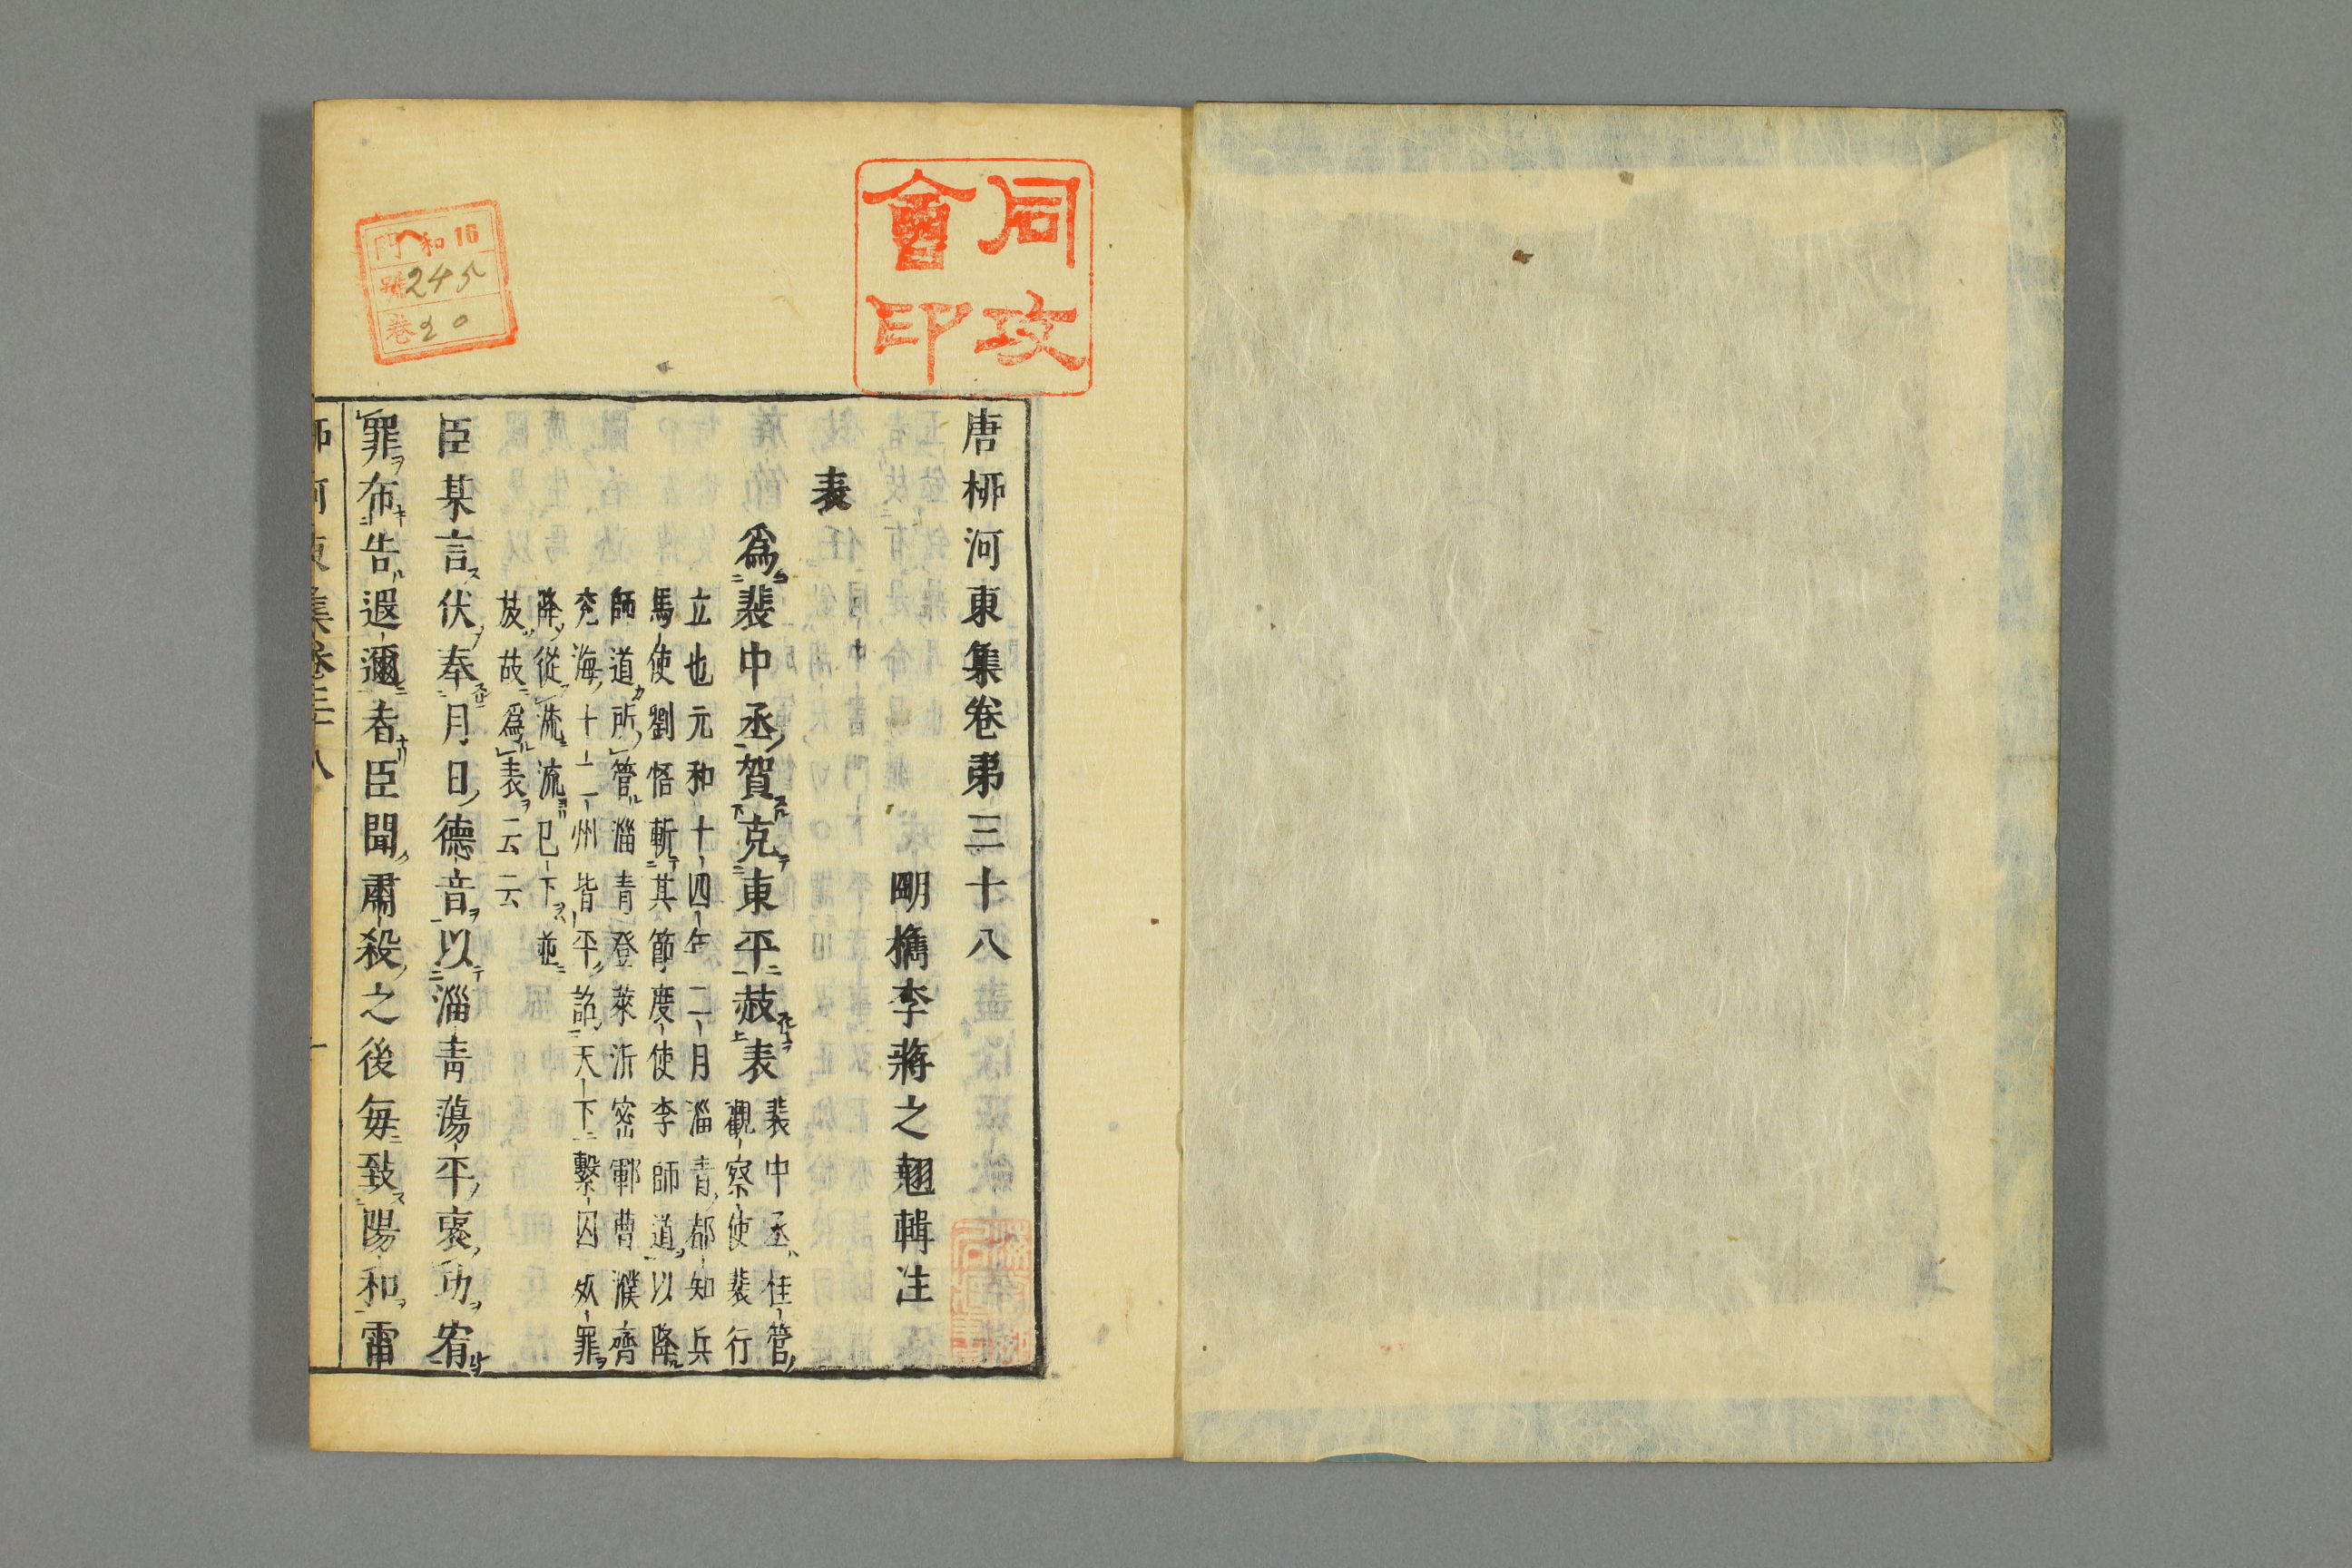 同攻
會印
和16
門
號245
卷20
唐柳河東集卷弟三十八
明檇李蔣之翹輯注
表
爲裴中丞賀克東平赦表
裴中丞桂管
觀察使裴行
立也元和十四年二月淄青都知兵
馬使劉悟斬其節度使李師道以降
師道所管淄青登萊沂密鄆曹濮齊
兗海十二州皆平詔天下繫囚死罪
降從流流已下並
放故爲表云云
臣某言伏奉月日德音以淄青蕩平褒功宥
罪布告遐邇者臣聞肅殺之後每致陽和雷
柳河東集卷三十八
一